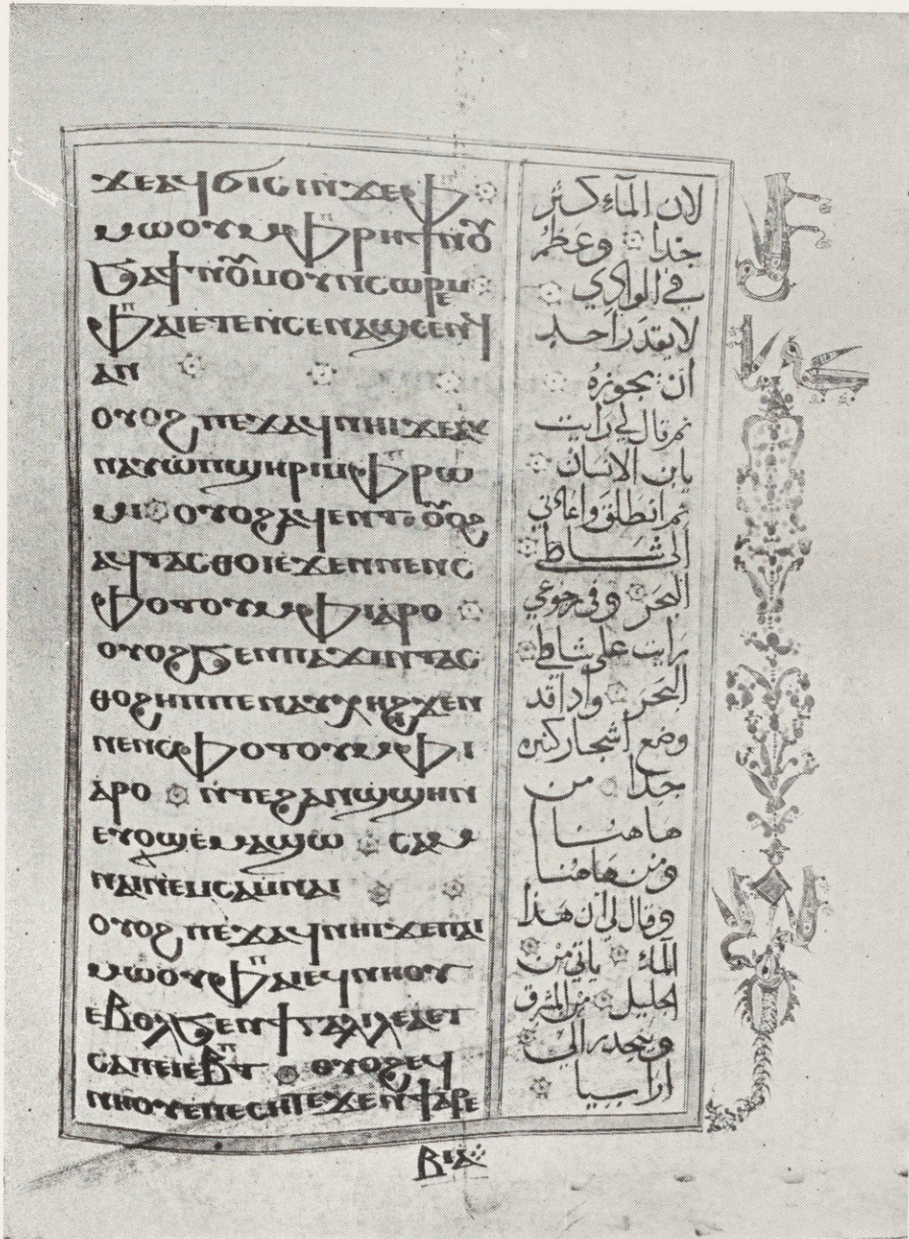 ϫⲉⲁϥϭⲓⲥⲓⲛϫⲉⲫ
ⲙⲱⲟⲩⲙⲫⲣⲏϯⲛⲟⲩ
ϧⲁϯⲛⲟⲩⲙⲟⲩⲛⲥⲱⲣⲉⲙ
ⲫⲁⲓⲉⲧⲉⲛⲥⲉⲛⲁϣⲥⲉⲛϥ
ⲁⲛ
ⲟⲩⲟϩⲡⲉϫⲁϥⲛⲏⲓϫⲉⲁⲛ
ⲛⲁⲩⲱⲡϣⲏⲣⲓⲙⲫⲣⲱ
ⲙⲓ ⲟⲩⲟϩⲁϥⲉⲛⲧ ⲟⲩⲟϩ
ⲁϥⲧⲁⲥⲑⲟⲓⲉϫⲉⲛⲛⲉⲛⲥ
ⲫⲟⲧⲟⲩⲙⲫⲓⲁⲣⲟ
ⲟⲩⲟϩϧⲉⲛⲡⲁϫⲓⲛⲧⲁⲥ
ⲑⲟϩⲏⲡⲡⲉⲛⲁⲩⲭⲏϩϫⲉⲛ
ⲛⲉⲛⲥⲫⲟⲧⲟⲩⲙⲫⲓ
ⲁⲣⲟ ⲛϫⲉϩⲁⲛϣϣⲏⲛ
ⲉⲩⲟϣⲉⲙⲁϣⲱ ⲥⲁⲙ
ⲛⲁⲓⲛⲉⲙⲥⲁⲙⲛⲁⲓ
ⲟⲩⲟϩⲡⲉϫⲁϥⲛⲏⲓϫⲉⲡⲁⲓ
ⲙⲱⲟⲩⲫⲁⲓⲉϥⲛⲏⲟⲩ
ⲉⲃⲟⲗϧⲉⲛϯⲅⲁⲗⲓⲗⲉⲁⲉⲧ
ⲥⲁⲡⲉⲓⲉⲃⲧ ⲟⲩⲟϩⲉϥ
ⲛⲏⲟⲩⲉⲡⲉⲥⲏⲧⲉϫⲉⲛϯⲁⲣⲉ
ⲃⲓⲁ
لان المآء كثر
جدا وعظم
في الوادي
لا يقدر احد
ان يجوزه
ثم قال لي رايت
يابن الانسان
ثم انطلق واعادني
الى شاطي
البحر وفي رجوعي
رايت على شاطي
البحر واذا قد
وضع اشجار كثيره
جدا من
هاهنا
ومن هاهنا
وقال لي ان هذا
المآء ياتي من
الجليل من المشرق
وينحدر الى
ارابيا